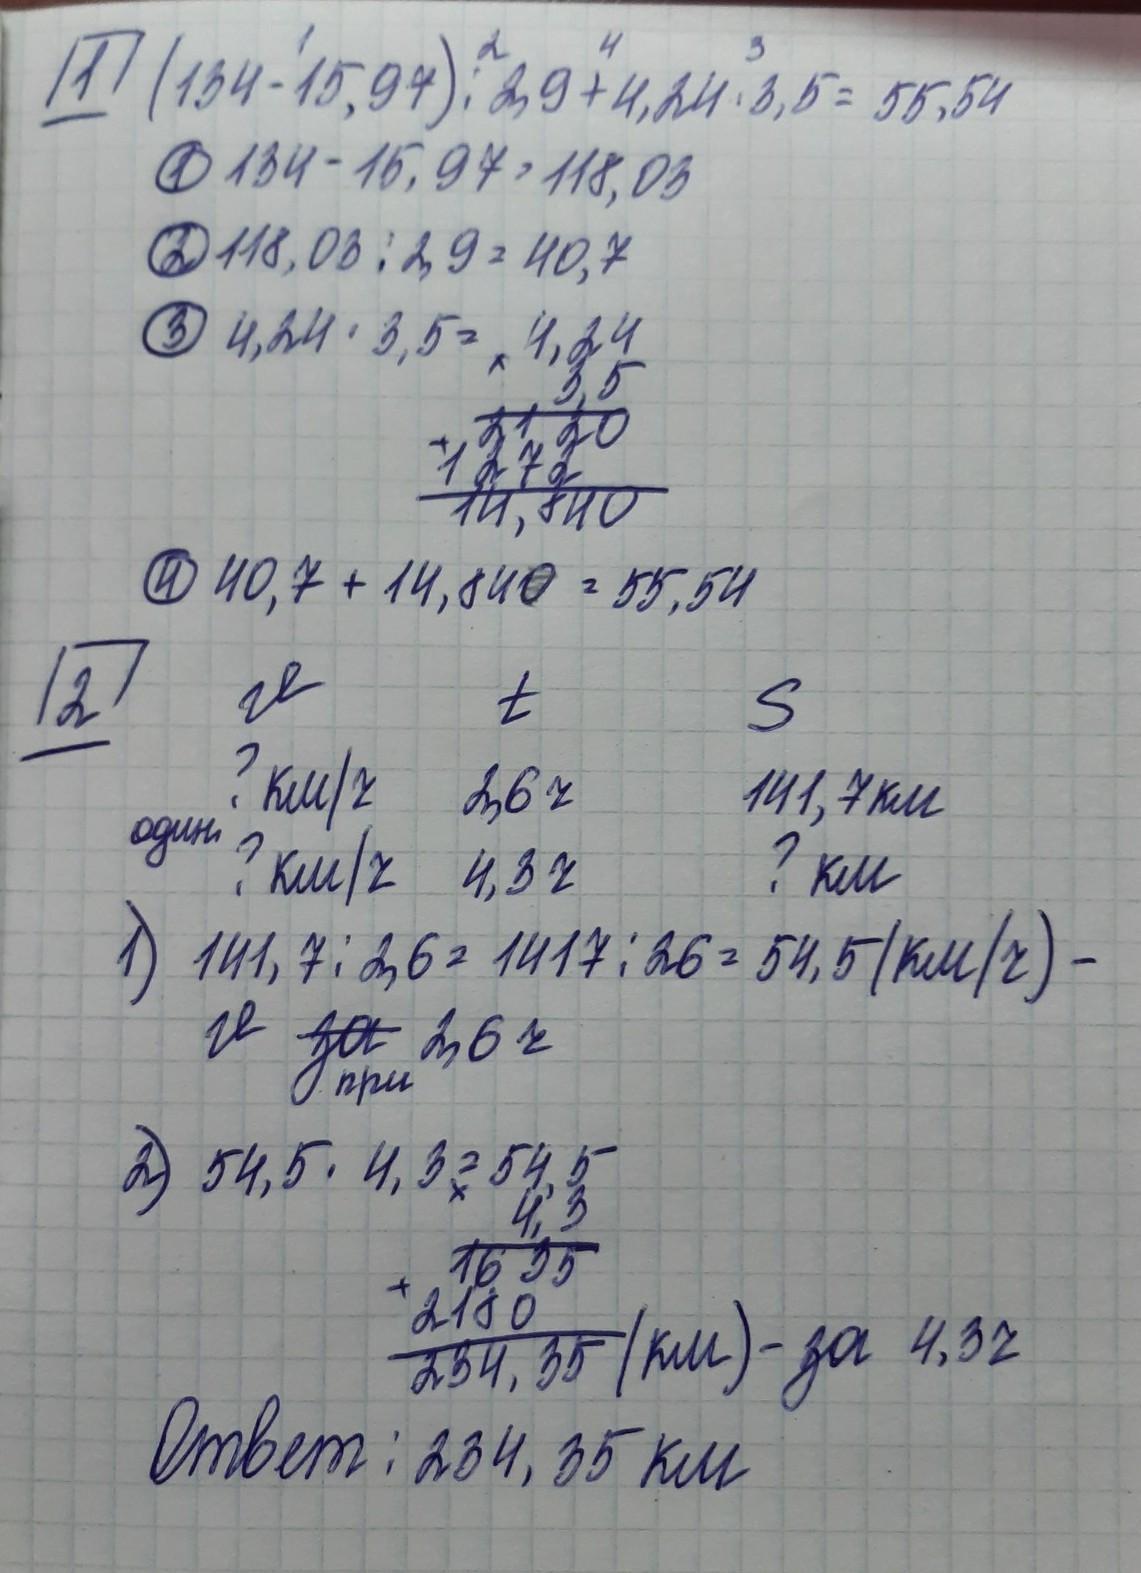 1 (134-15,97):2,9+4,24·3,5= 55,54
1 2 4 3
① 134-15,97=118,03
② 118,03:2,9=40,7
③ 4,24·3,5= × 4,24
3,5
2120
+
1272
14,840
④ 40,7+14,840=55,54
2 v t S
? км/ч 2,6ч 141,7км
один.
? км/ч 4,3ч ? км
1) 141,7:2,6=1417:26=54,5(км/ч)-
v за 2,6ч
при
2) 54,5·4,3= 54,5
× 4,3
1635
+
2180
234,35 (км)-за 4,3ч
Ответ: 234,35 км